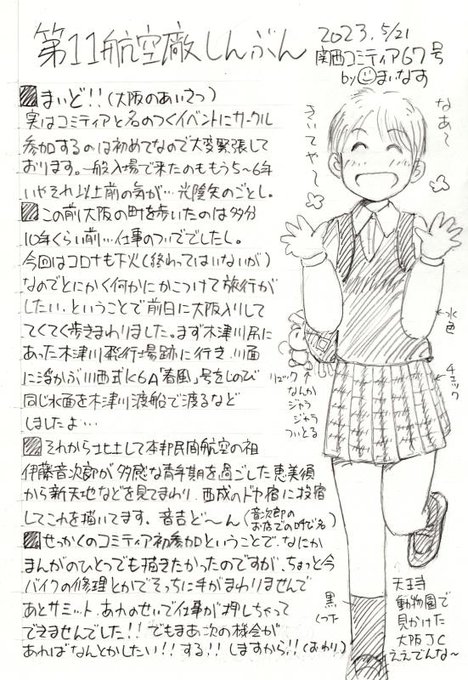 第11航空廠しんぶん
2023.5/21
関西コミティア67号
by まいなす
まいど!!(大阪のあいさつ)
実はコミティアと名のつくイベントにサークル
参加するのは初めてなので大変緊張して
おります。一般入場で来たのももう5〜6年
いやそれ以上前の気が…光陰矢のごとし。
この前大阪の町を歩いたのは多分
10年くらい前…仕事のついででしたし。
今回はコロナも下火(終わってはいないが)
なのでとにかく何かにかこつけて旅行が
したい。ということで前日に大阪入りして
てくてく歩きまわりました。まず木津川尻に
あった木津川飛行場跡に行き、川面
に浮かぶ川西式K6A「春風」号をしのび
同じ水面を木津川渡船で渡るなど
しましたよ…
それから北上して本邦民間航空の祖
伊藤音次郎が多感な青年期を過ごした恵美須
から新天地などを見てまわり、西成のドヤ宿に投宿
してこれを描いてます。音吉ど〜ん(音次郎のお店での呼び名)
せっかくのコミティア初参加ということで、なにか
まんがのひとつでも描きたかったのですが、ちょっと今
バイクの修理とかでそっちに手がまわりませんで
あとサミット、あれのせいで仕事が押しちゃって
できませんでした!!でもまあ次の機会が
あればなんとかしたい!!する!!しますから!!(おわり)
なあ〜
きいてや〜
水色
チェック
リュック
なんか
ジャラ
ジャラ
ついとる
黒
くつ下
天王寺
動物園で
見かけた
大阪JC
ええでんな〜